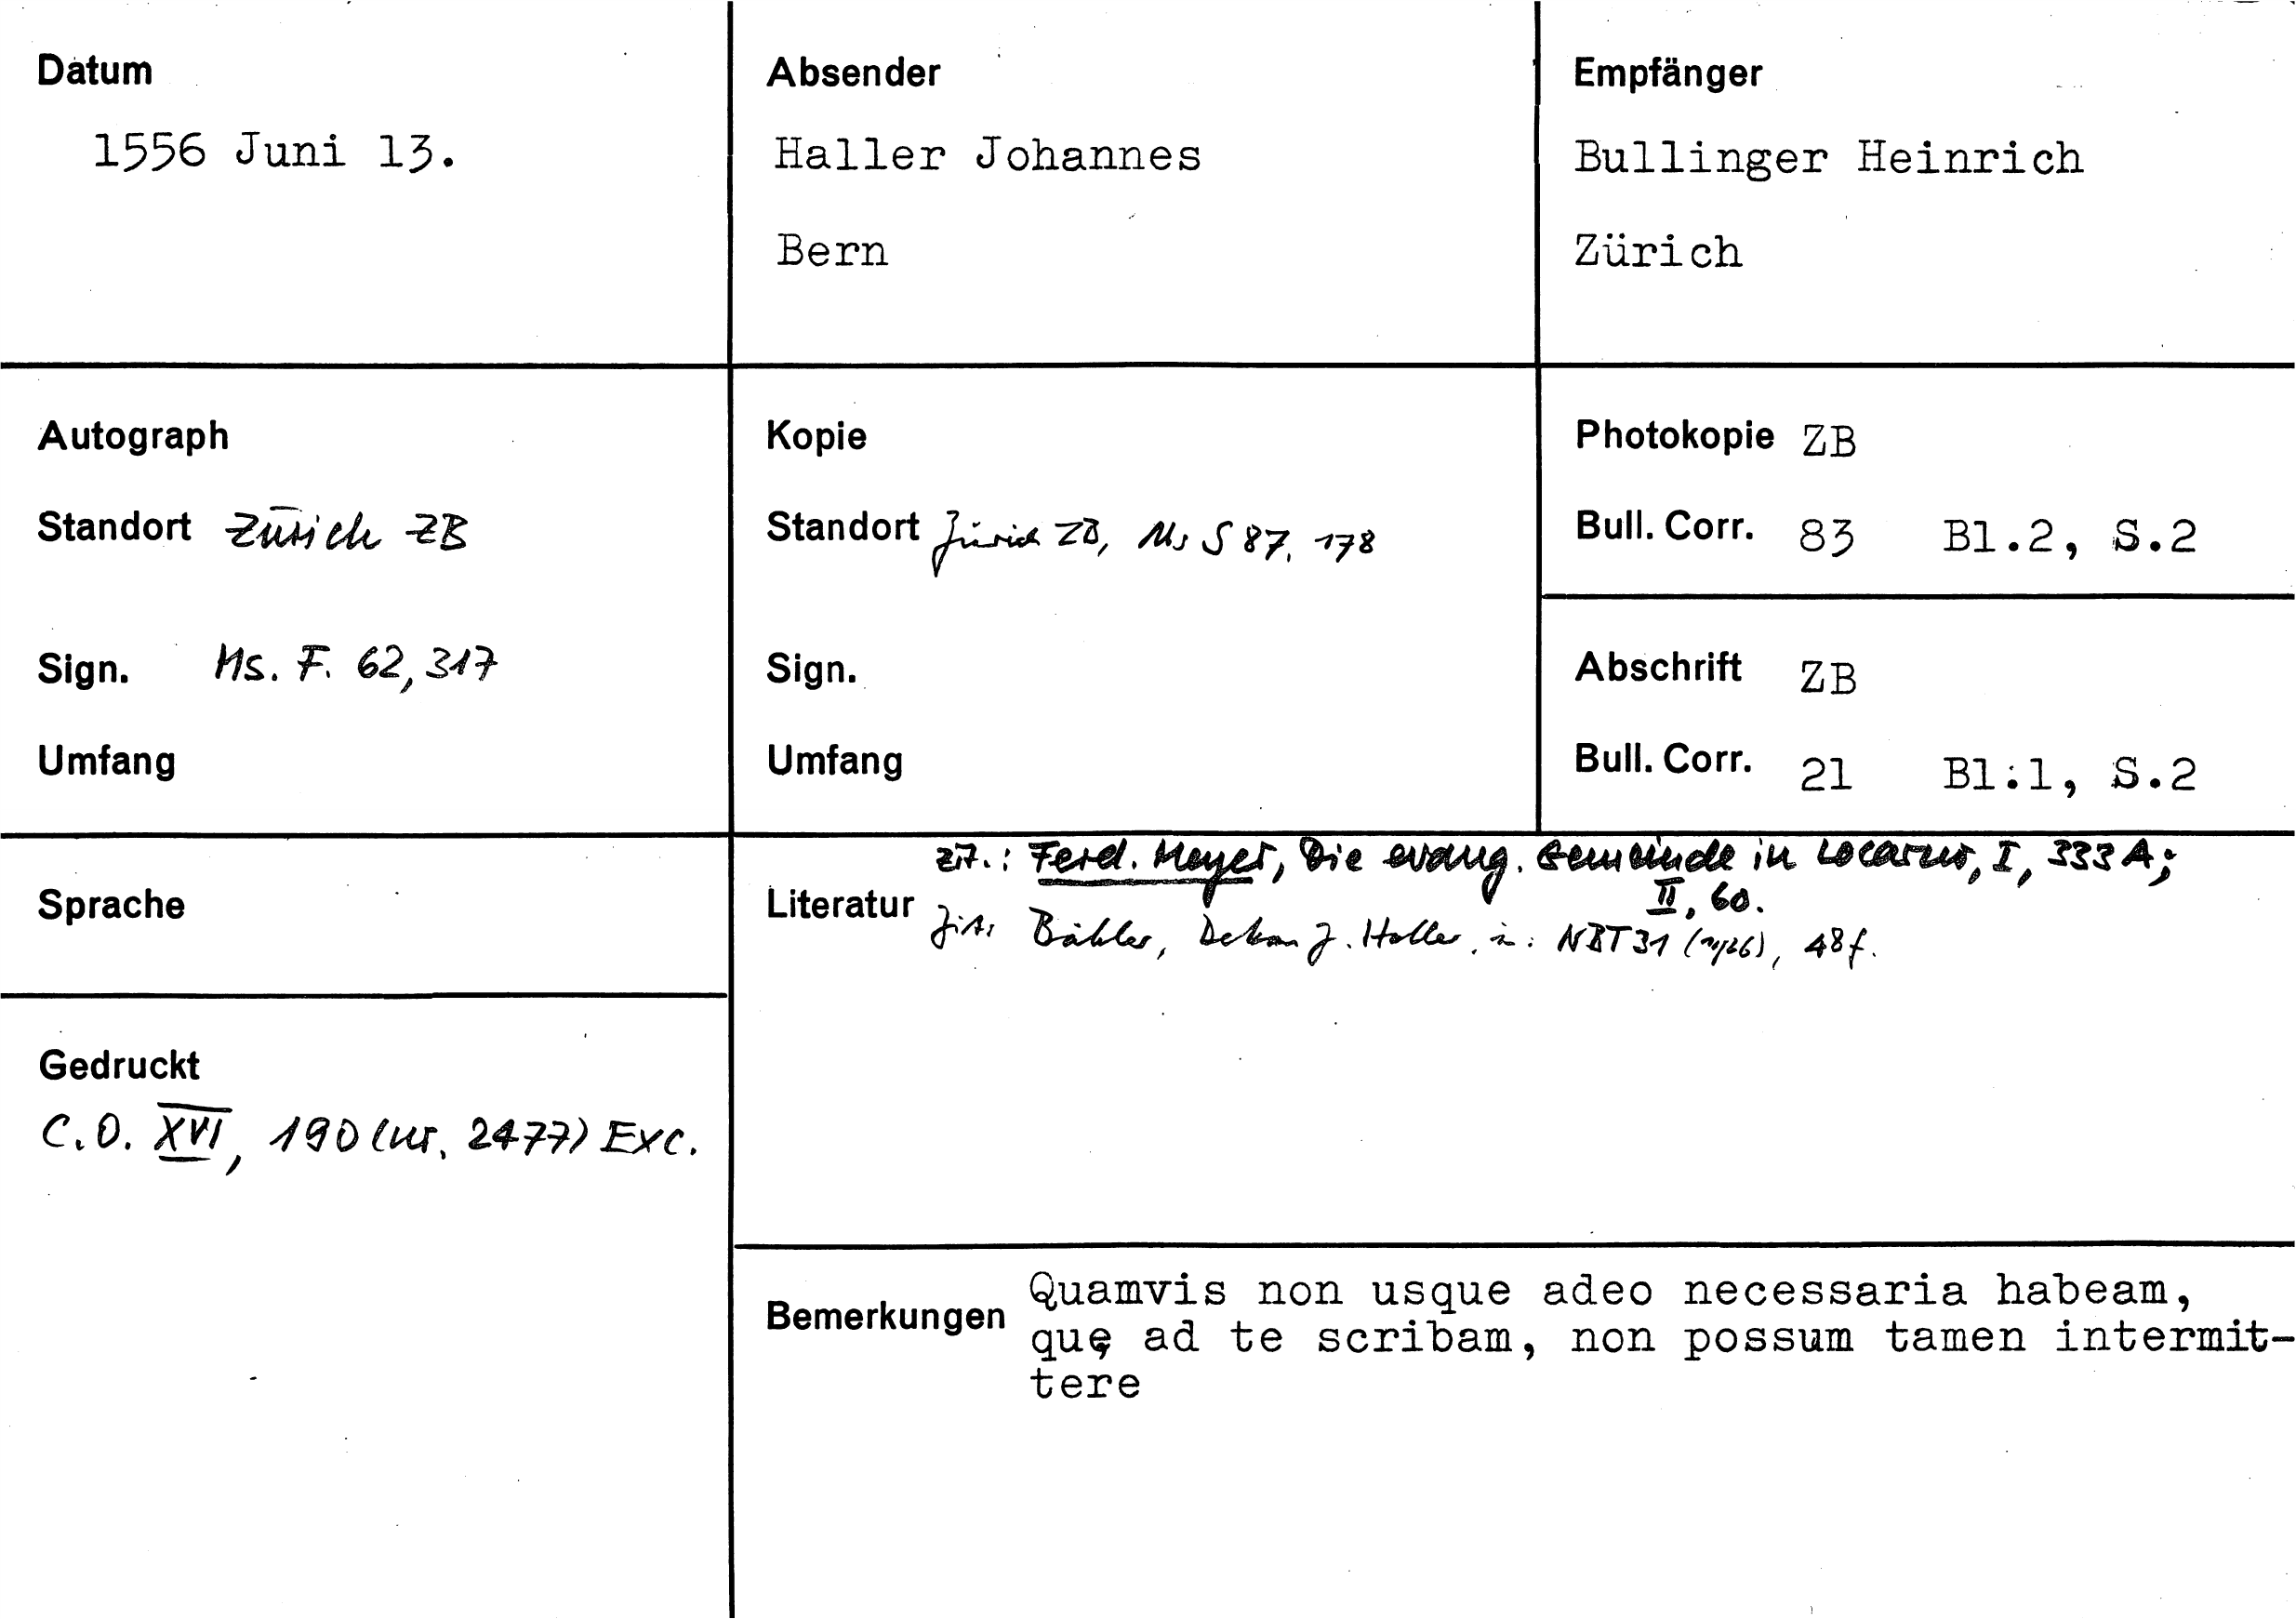 Datum
1556 Juni 13.
Absender
Haller Johannes
Bern
Empfänger
Bullinger Heinrich
Zürich
Autograph
Standort Zürich ZB
Sign. Ms. F. 62, 317
Umfang
Kopie
Standort Zürich ZB, Ms S 87, 178
Sign.
Umfang
Photokopie ZB
Bull. Corr. 83 Bl.2, S.2
Abschrift ZB
Bull. Corr. 21 Bl.1, S.2
Sprache
Gedruckt
C.O. XVI, 190 (nr. 2477) Exc.
Literatur
zit.: Ferd. Meyer, Die evang. Gemeinde in Locarno, I, 333 A;
II, 60.
Zit. Bähler, Dekan J. Haller, in: NBT 31 (1926), 48f.
Bemerkungen
Quamvis non usque adeo necessaria habeam,
quę ad te scribam, non possum tamen intermit-
tere